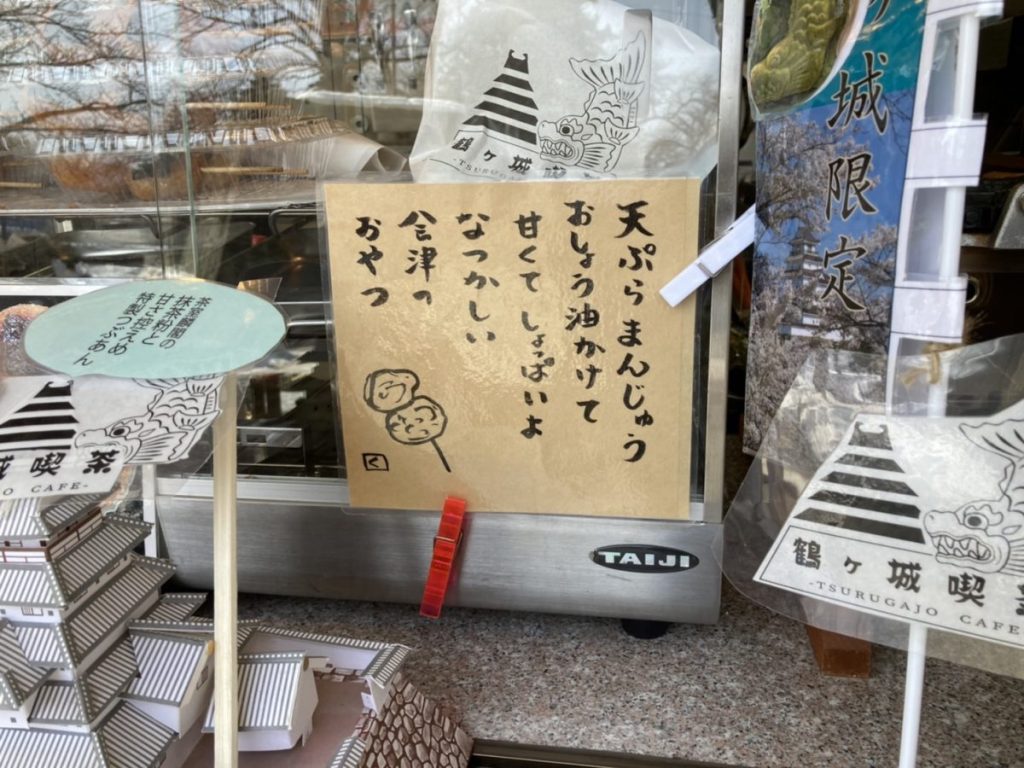 鶴ヶ城喫
-TSURUGAJO
天ぷらまんじゅう
おしょう油かけて
甘くてしょっぱいよ
なつかしい
会津の
おやつ
く
城限定
茶室麟閣の
抹茶粉と
甘さ控えめ
特製つぶあん
城喫茶
O CAFE-
TAIJI
鶴ヶ城喫茶
-TSURUGAJO CAFE-